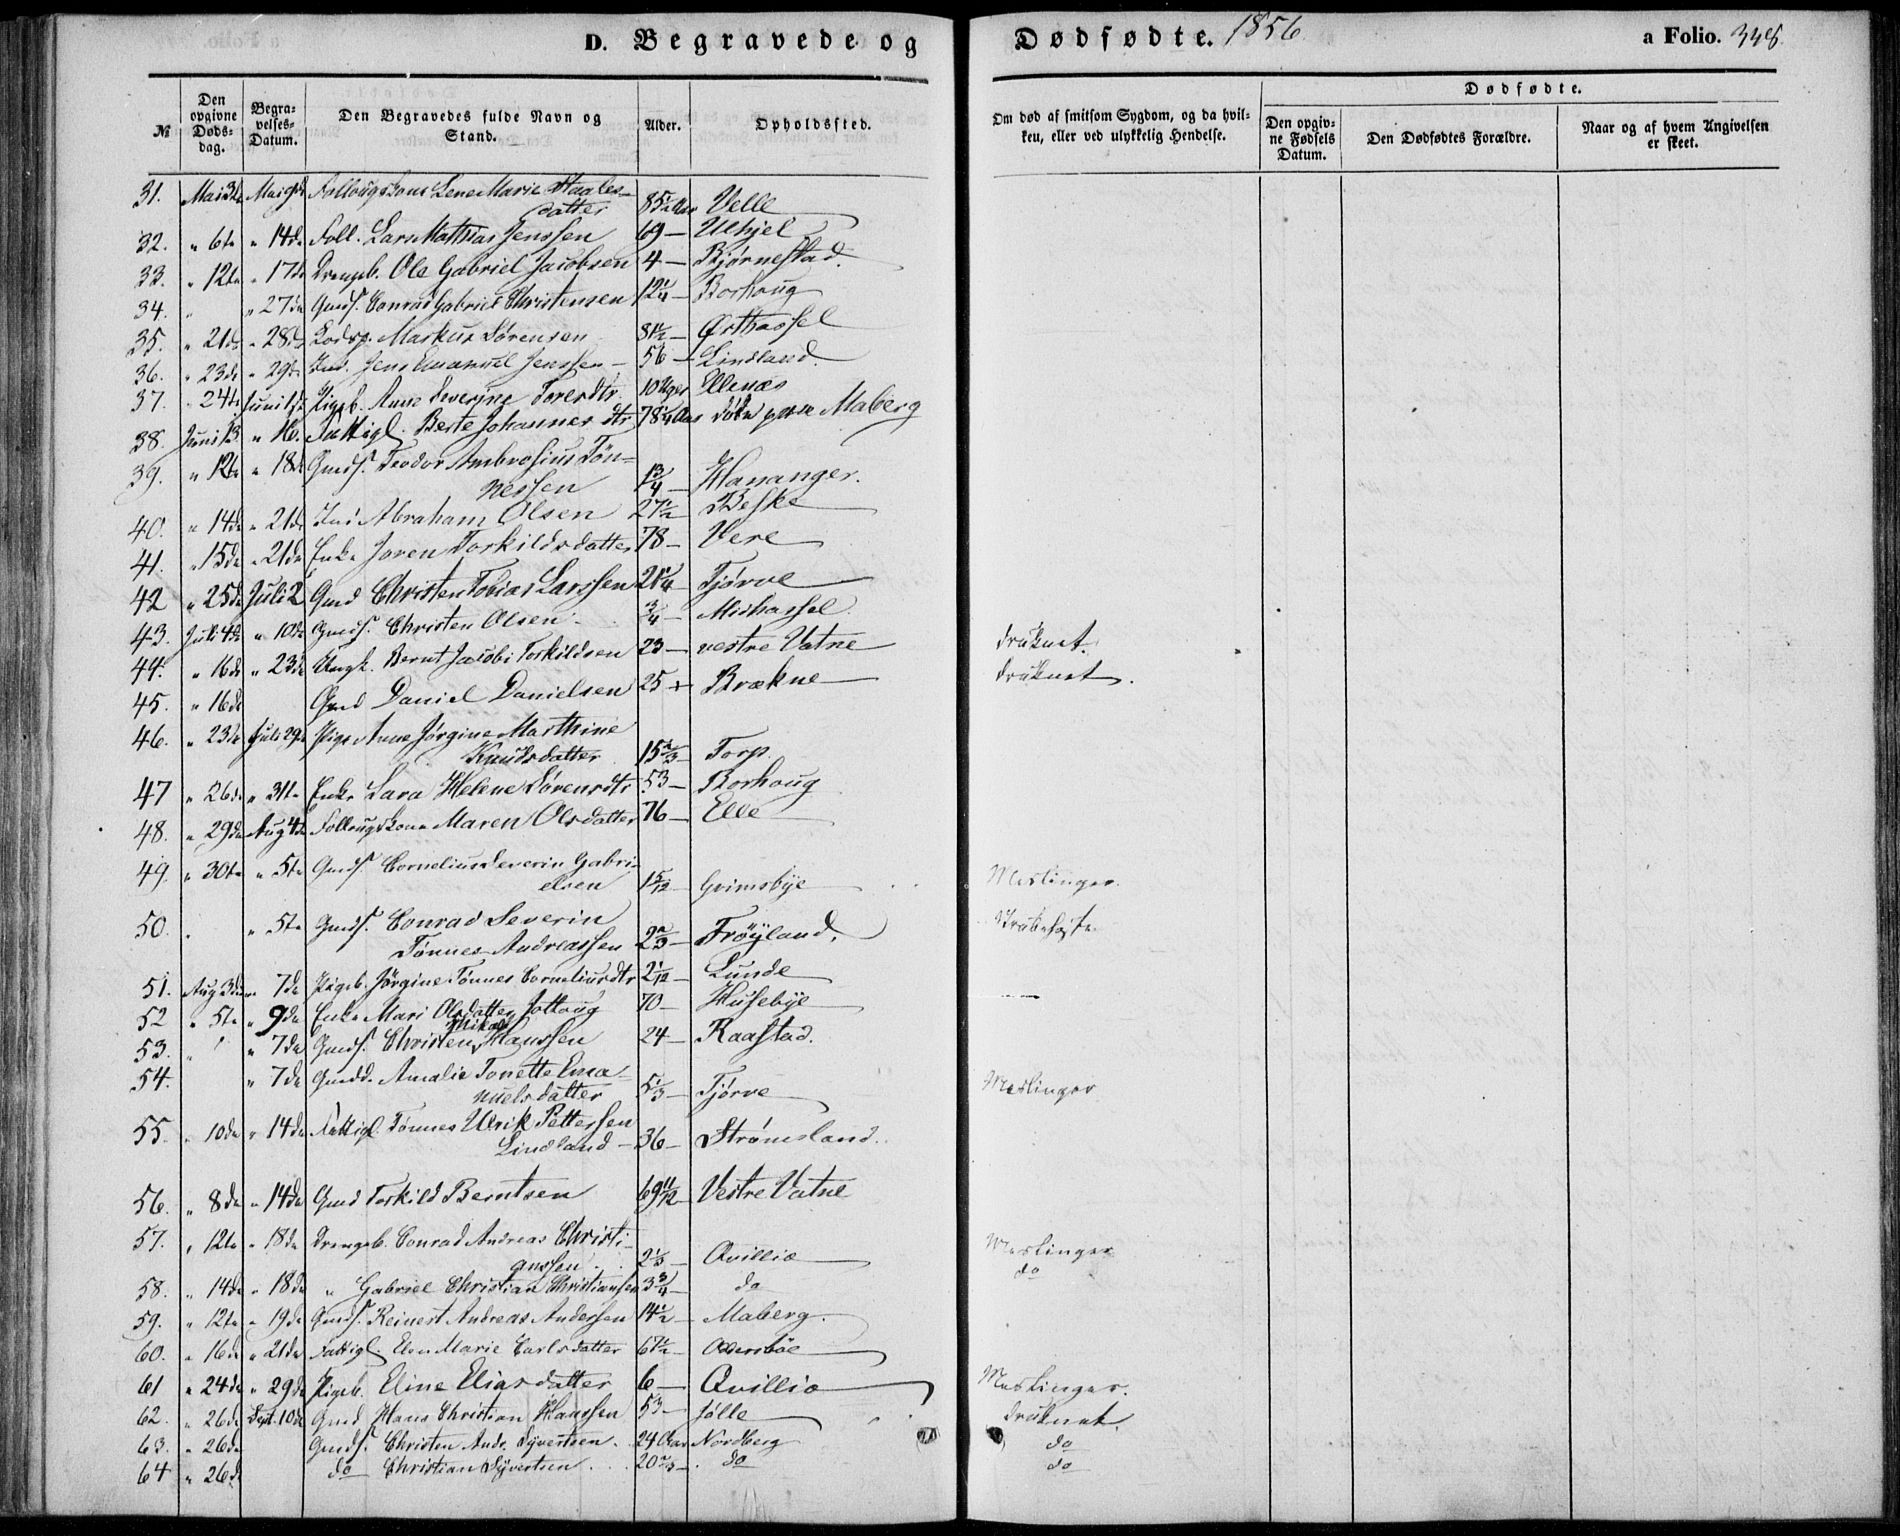 D. Begravede og Dødfødte. 1856 a Folio. 348
№ Den opgivne Døds-dag. Begra-velses-Datum. Den Begravedes fulde Navn og Stand. Alder. Opholdssted. Om død af smitsom Sygdom, og da hvil-ken, eller ved ulykkelig Hendelse. Dødfødte. Den opgiv-ne Fødsels Datum. Den Dødfødtes Forældre. Naar og af hvem Angivelsen er skeet.
31. Mai 3de Mai 9de Follougskone Lene Marie Staales-
datter 85 1/2 Aar Velle
32. " 6te " 14de Foll. Lars Mathias Jenssen 69 — Ulhjel
33. " 12te " 17de Drengeb. Ole Gabriel Jacobsen 4 — Bjørnestad.
34. " " 27de Gmds. Conrad Gabriel Christensen 12 1/4 — Borhoug
35. " 21de " 28de Markus Sørensen 81 1/2 — Østhassel
36. " 23de " 29de Ind. Jens Emanuel Jenssen — 56 — Lindland.
37. " 24de Juni 1ste Pigeb. Anne Severine Toresdtr. 10 Uger Ellenæs
38. Juni 13 " 16. Fattigl. Berte Johannes dtr 78 1/4 Aar Maberg
39. " 12te " 18de Gmds. Teodor Ambrosius Tøn-
nessen 1 3/4 — Hananger.
40. " 14de " 21de Ind Abraham Olsen 27 1/2 Beske
41. " 15de " 21de Enke Joren Torkildsdatter 78 — Vere
42 " 25de Juli 2 Gmd Christen Tobias Larssen 21 1/4 — Tjørve
43. Juli 4de " 10de Gmds. Christen Olsen — 3/4 — Midhassel.
44. " 16de " 23de Ungk. Bernt Jacobi Torkildsen 23 — vestre Vatne druknet.
45. " 16de Gmd Daniel Danielsen 25 + Brækne druknet.
46. " 23de Juli 29de Pige Anne Jørgine Marthine
Knudsdatter 15 2/3 — Torp.
47 " 26de " 31te Enke Sara Helene Sørensdtr 53 — Borhoug
48. " 29de Aug 4de Follougskone Maren Olsdatter 76 — Elle
49. " 30te " 5te Gmds. Cornelius Severin Gabri-
elsen 1 5/12 — Grimsbye Meslinger.
50. " " 5te Gmds. Conrad Severin
Tønnes Andreassen 2 2/3 — Frøyland. Strubehoste
51. Aug 3die " 7de Pigeb. Jørgine Tønnes Corneliusdtr 2 1/12 — Lunde —
52 " 5te " 9de Enke Mari Olsdatter Jottoug 70 — Husebye
53. " " 7de Gmds. Christen Mikal Hanssen 24 — Raastad.
54. " 7de Gmdd. Amalie Tonette Ema-
nuelsdatter 5 1/3 — Tjørve Meslinger
55. " 10de " 14de Fattigl. Tønnes Ulrik Pettersen
Lindland — 36 — Strømsland.
56. " 8de " 14de Gmd Torkild Berntsen 69 11/12 — Vestre Vatne
57. " 12te " 18de Drengeb. Conrad Andreas Christi-
anssen 2 1/3 — Qvillio Meslinger
58. " 14de " 18de " Gabriel Christian Christiansen 3 3/4 — do do
59. " 12te " 19de Gmds. Reinert Andreas Anderssen 14 1/2 — Maberg.
60. " 16de " 21de Fattigl. Elen Marie Carlsdatter 67 1/2 —
61 " 24de " 29de Pigeb. Eline Eliasdatter 6 — Qvillio Meslinger.
62. " 26de Sept. 10de Gmd Hans Christian Hanssen 53 — Jølle druknet.
63. " 26de Gmds. Christen Andr. Syvertsen. 24 Aar Nordberg do
64 " 26de do Christian Syvertsen 20 2/3 — do do